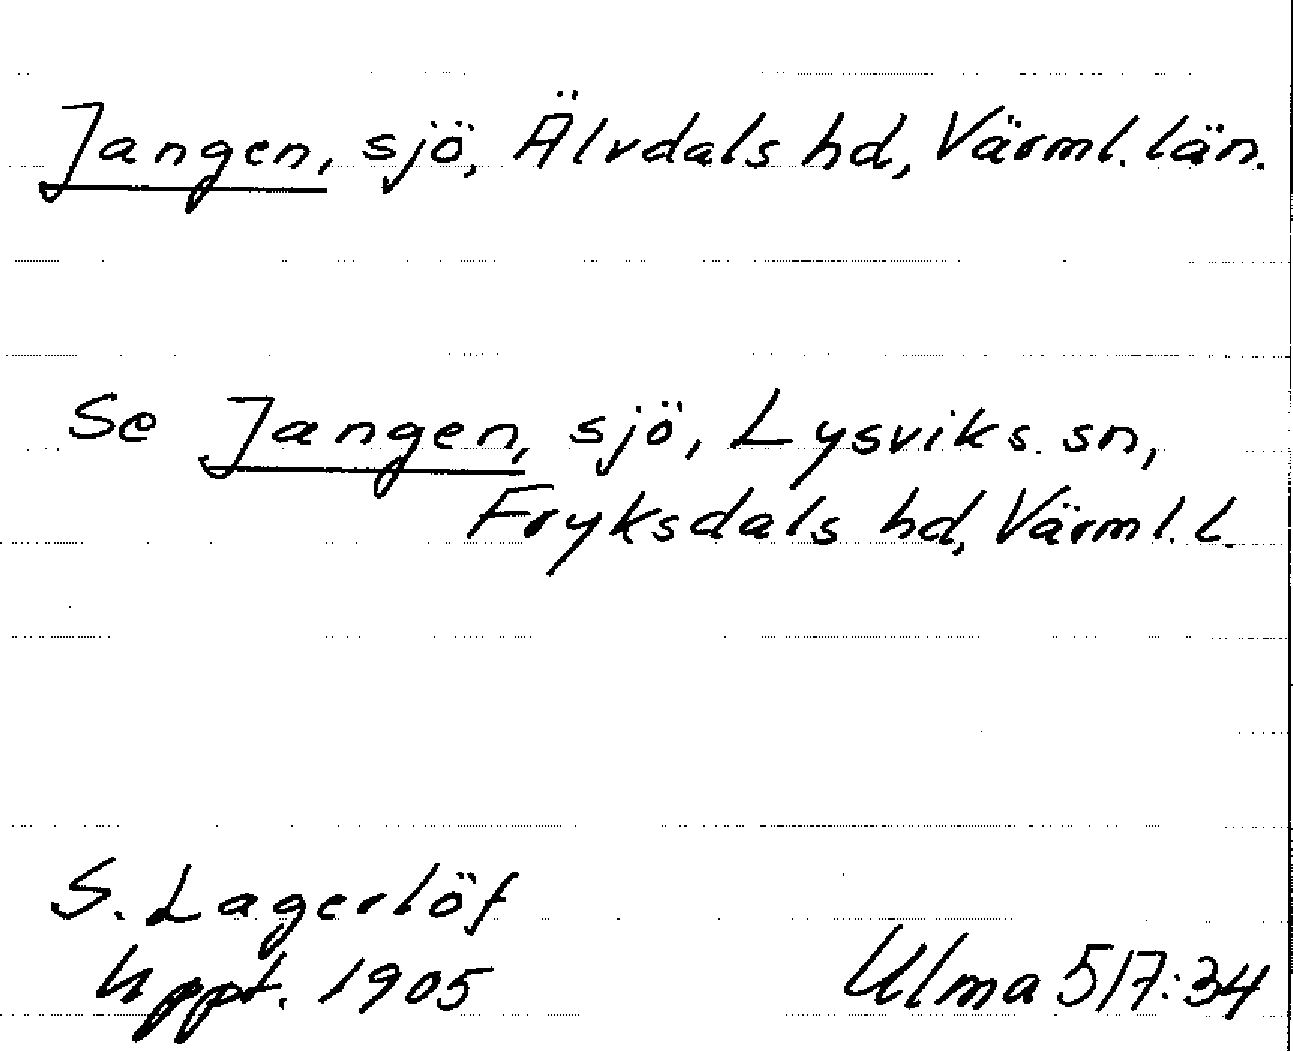 Jangen, sjö, Älvdals hd, Värml. län.
Se Jangen, sjö, Lysviks sn,
Fryksdals hd, Värml. L.
S. Lagerlöf
Uppt. 1905
Ulma 517:34